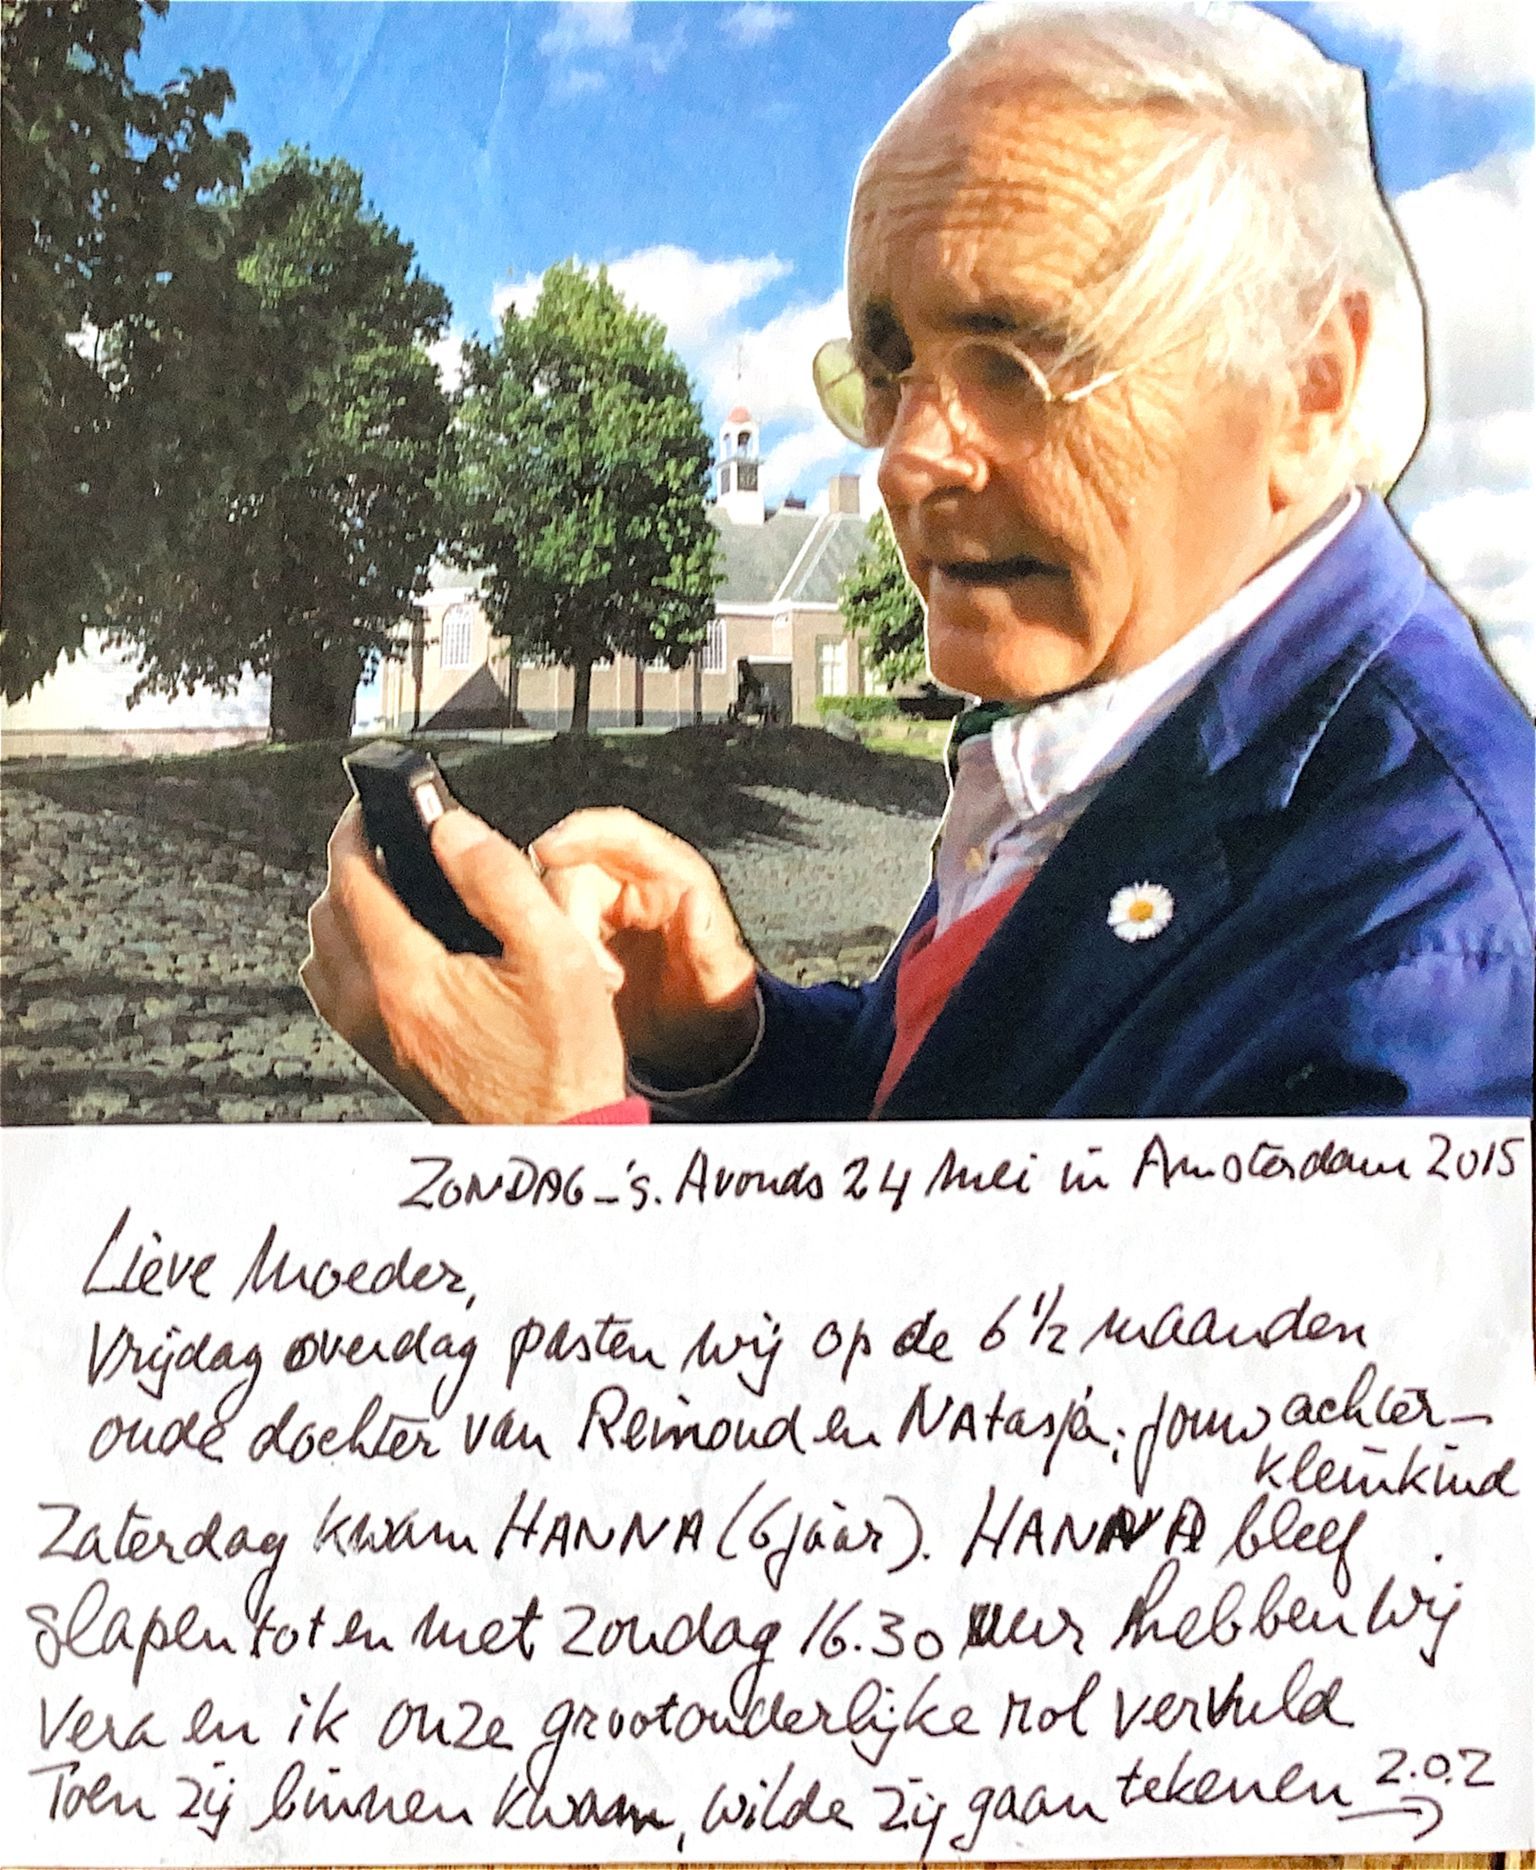 ZONDAG-'s. Avonds 24 Mei in Amsterdam 2015
Lieve Moeder,
Vrijdag overdag pasten wij op de 6 1/2 maanden
oude dochter van Reinoud en Natasja; jouw achter-
kleinkind
Zaterdag kwam HANNA (6 jaar). HANNA bleef
slapen tot en met zondag 16.30 uur hebben wij
Vera en ik onze grootouderlijke rol vervuld
Toen zij binnen kwam, wilde zij gaan tekenen z.o.z